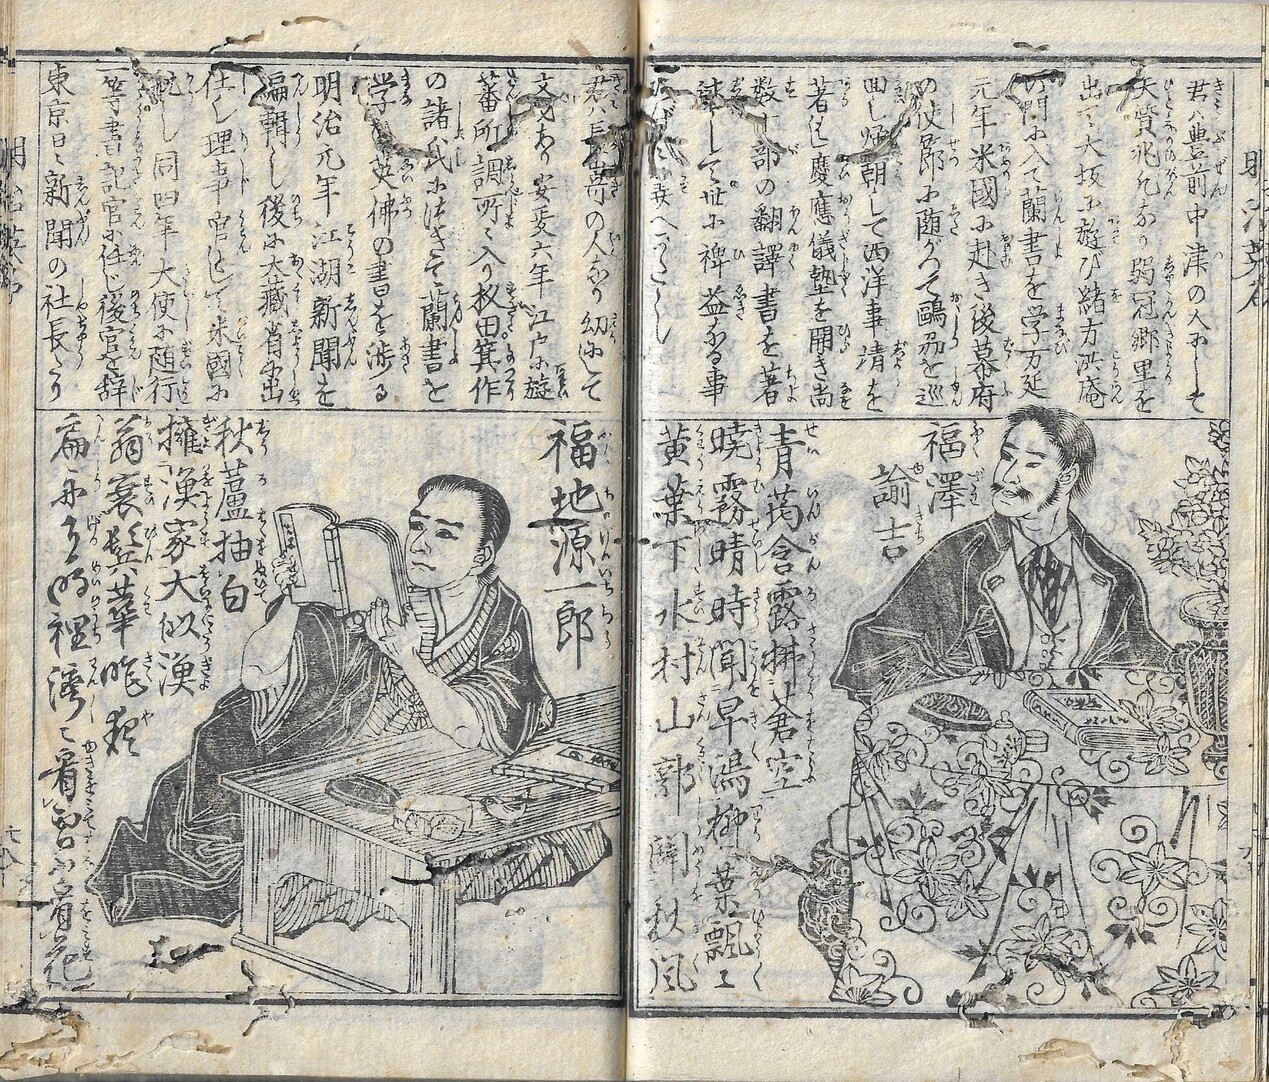 君ハ豊前中津の人にして
天資非凡なり弱冠郷里を
出て大坂に遊び緒方洪庵
の門に入て蘭書を学万延
元年米國に赴き後幕府
の使節に随がつて鷗列を巡
回し帰朝して西洋事情を
著はし慶應儀塾を開き尚
数十部の翻譯書を著
譯して世に裨益なる事
福澤
諭吉
青荺含露拂蒼空
曉霧晴時聞早鴻柳葉飄〻
黄葉下水村山郭闘秋風
君ハ長崎の人なり幼にして
文才あり安政六年江戸に遊
蕃所調所に入り杉田箕作
の諸氏に
つきて蘭書を
学び英佛の書を渉る
明治元年江湖新聞を
編輯し後に大藏省に出
仕し理事官として米國に
航し同四年大使に随行
一等書記官に任じ後官を辞
東京日〻新聞の社長たり
福地源一郎
秋蘆抽白
擁漁家大似漁
翁衰鬓華昨夜
扁舟
明治英名